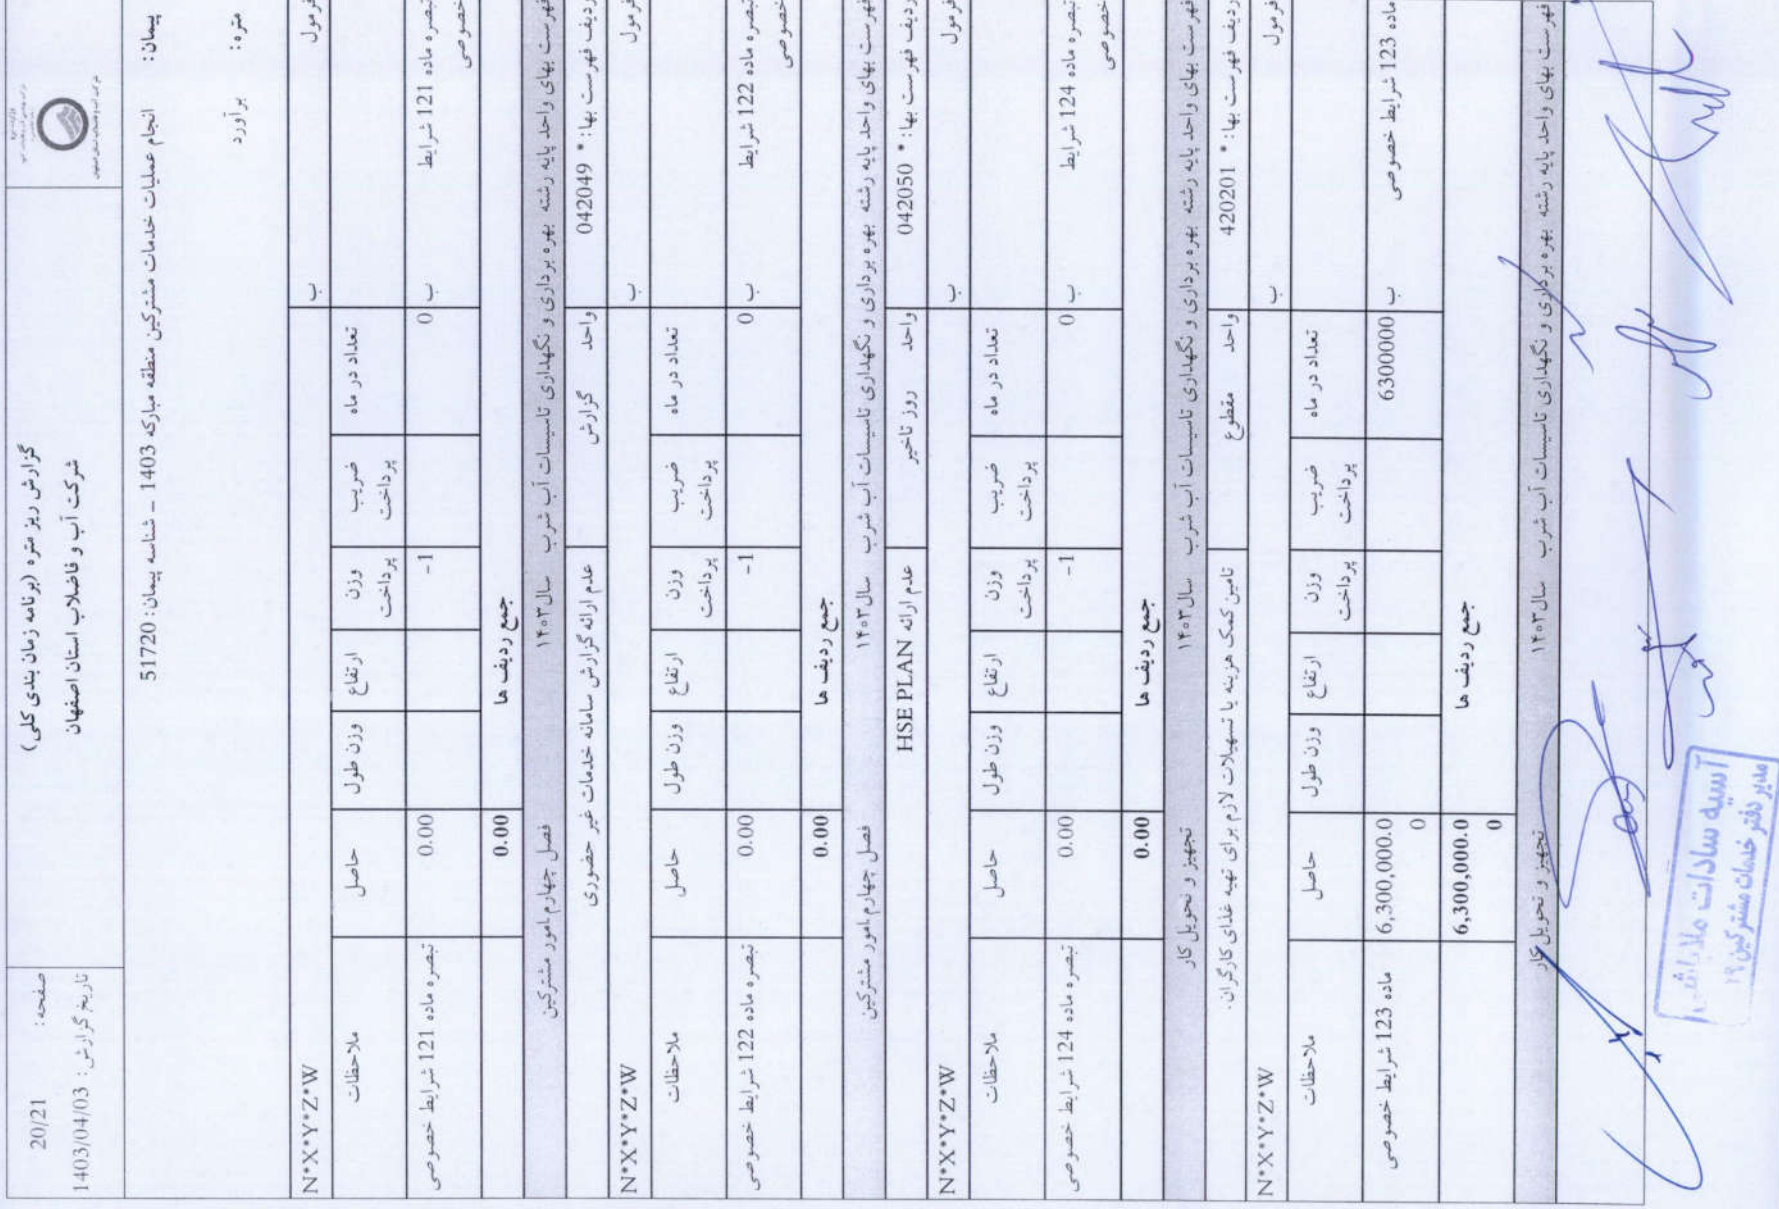 گزارش ریز متره (برنامه زمان بندی کلی)
شرکت آب و فاضلاب استان اصفهان
صفحه: 20/21
تاریخ گزارش: 1403/04/03
پیمان: انجام عملیات خدمات مشترکین منطقه مبارکه 1403 – شناسه پیمان: 51720
متره: برآورد
فرمول ب N*X*Y*Z*W
تعداد در ماه ضریب پرداخت وزن پرداخت ارتفاع وزن طول حاصل ملاحظات
تبصره ماده 121 شرایط خصوصی ب 0 -1 0.00 تبصره ماده 121 شرایط خصوصی
جمع ردیف ها 0.00
فهرست بهای واحد پایه رشته بهره برداری و نگهداری تاسیسات آب شرب سال ۱۴۰۳ فصل چهارم امور مشترکین
ردیف فهرست بها: * 042049 واحد گزارش عدم ارائه گزارش سامانه خدمات غیر حضوری
فرمول ب N*X*Y*Z*W
تعداد در ماه ضریب پرداخت وزن پرداخت ارتفاع وزن طول حاصل ملاحظات
تبصره ماده 122 شرایط خصوصی ب 0 -1 0.00 تبصره ماده 122 شرایط خصوصی
جمع ردیف ها 0.00
فهرست بهای واحد پایه رشته بهره برداری و نگهداری تاسیسات آب شرب سال ۱۴۰۳ فصل چهارم امور مشترکین
ردیف فهرست بها: * 042050 واحد روز تاخیر عدم ارائه HSE PLAN
فرمول ب N*X*Y*Z*W
تعداد در ماه ضریب پرداخت وزن پرداخت ارتفاع وزن طول حاصل ملاحظات
تبصره ماده 124 شرایط خصوصی ب 0 -1 0.00 تبصره ماده 124 شرایط خصوصی
جمع ردیف ها 0.00
فهرست بهای واحد پایه رشته بهره برداری و نگهداری تاسیسات آب شرب سال ۱۴۰۳ تجهیز و تحویل کار
ردیف فهرست بها: * 420201 واحد مقطوع تامین کمک هزینه یا تسهیلات لازم برای تهیه غذای کارگران.
فرمول ب N*X*Y*Z*W
تعداد در ماه ضریب پرداخت وزن پرداخت ارتفاع وزن طول حاصل ملاحظات
ماده 123 شرایط خصوصی ب 6300000 6,300,000.00 ماده 123 شرایط خصوصی
جمع ردیف ها 6,300,000.00
فهرست بهای واحد پایه رشته بهره برداری و نگهداری تاسیسات آب شرب سال ۱۴۰۳ تجهیز و تحویل کار
آسیه سادات
مدیر دفتر خدمات مشترکین